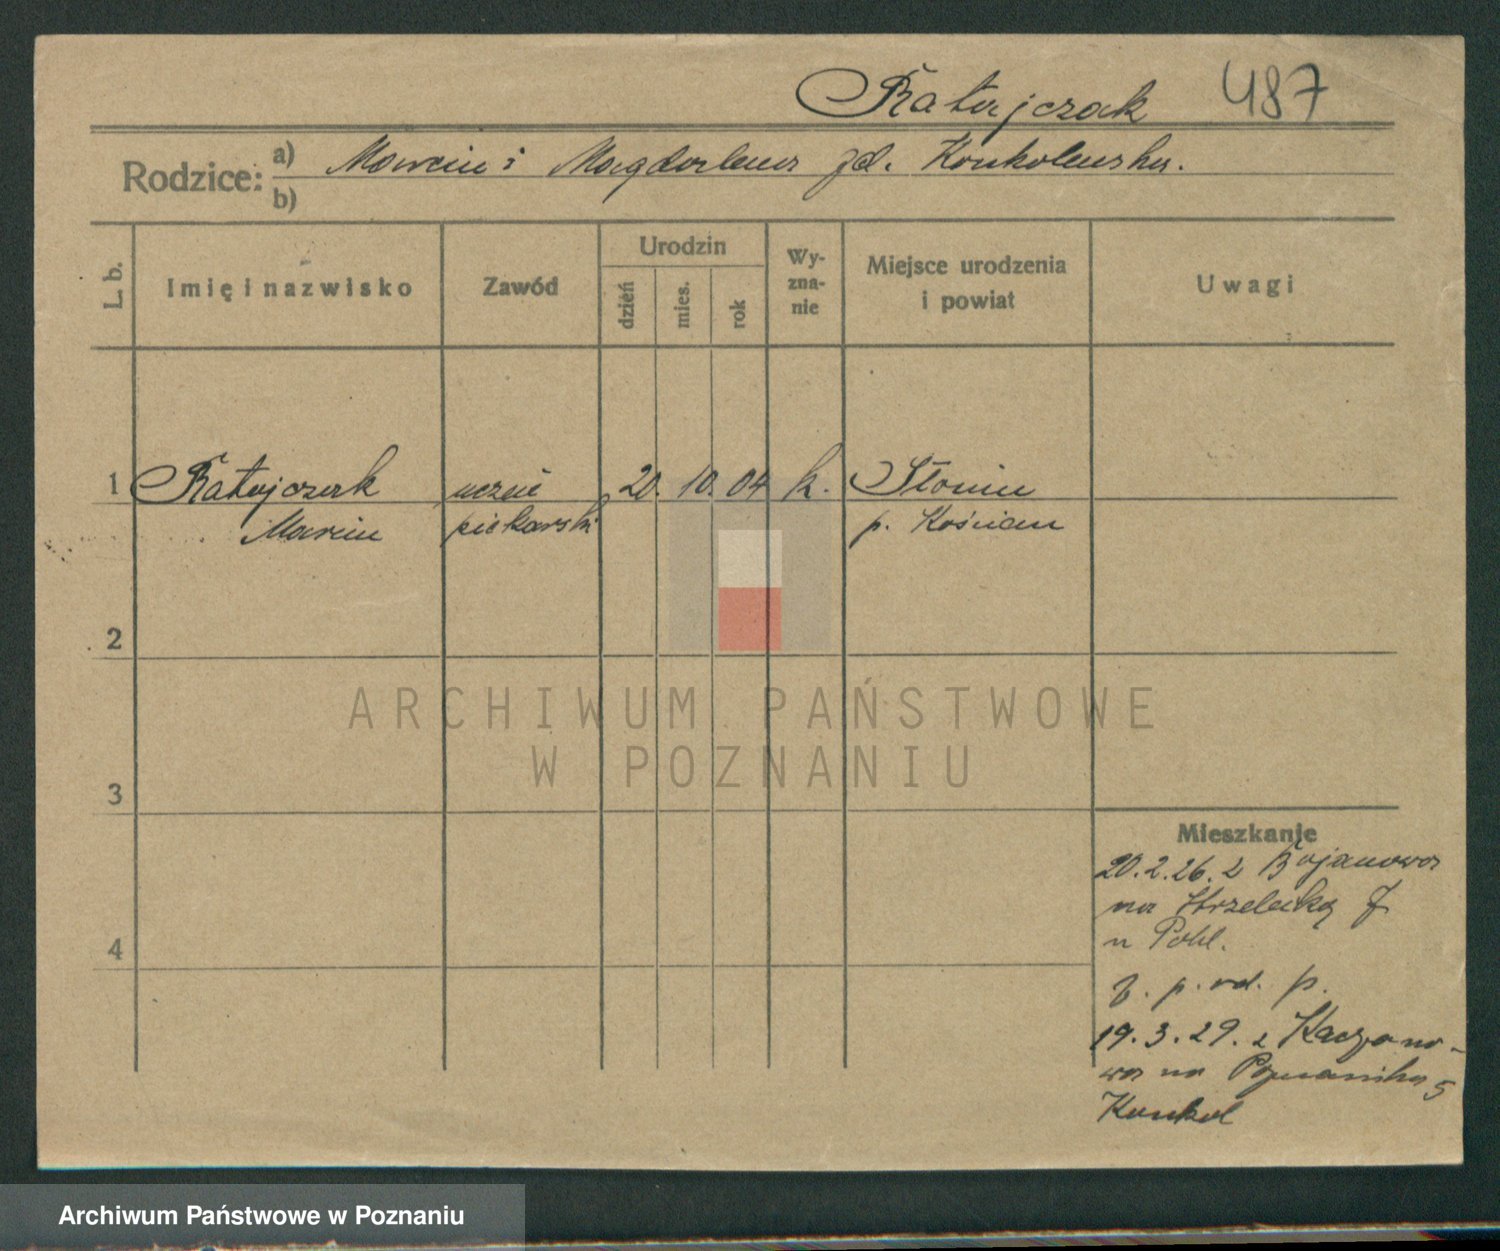 Ratajczak 487
Rodzice: a) Marcin i Magdalena zd. Konkolewska.
b)
L. b.
Imię i nazwisko
Zawód
Urodzin
dzień
mies.
rok
Wy-
zna-
nie
Miejsce urodzenia
i powiat
Uwagi
1 Ratajczak uczeń 20. 10. 04 k. Słonin
Marcin piekarski p. Kościan
2
3
4
Mieszkanie
20.2.26. z Bojanowa
na Strzelecką 7
u Pohl.
19.3.29. z Kaczano-
wa na Poznańska 5
Konkol
ARCHIWUM PAŃSTWOWE
W POZNANIU
Archiwum Państwowe w Poznaniu